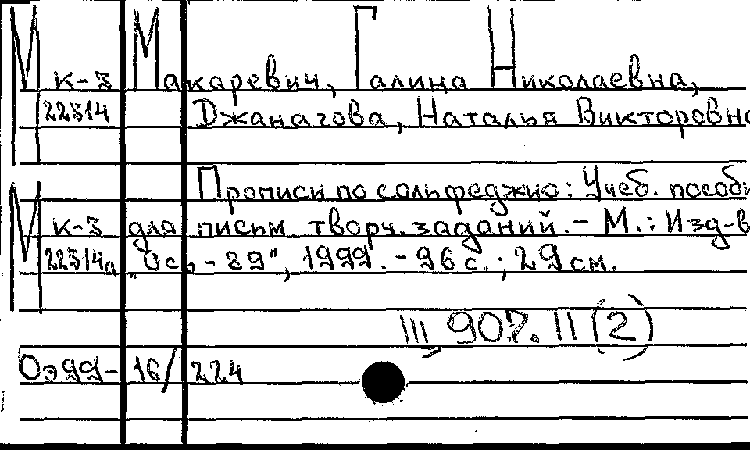 М к-3 Макаревич, Галина Николаевна,
22314 Джанагова, Наталья Викторовна
Прописи по сольфеджио: Учеб. пособи
М к-3 для письм. творч. заданий. – М.: Изд-в
22314а „Ось-89", 1999. – 96 с.; 29 см.
III 907. II (2)
Оэ99-16/224